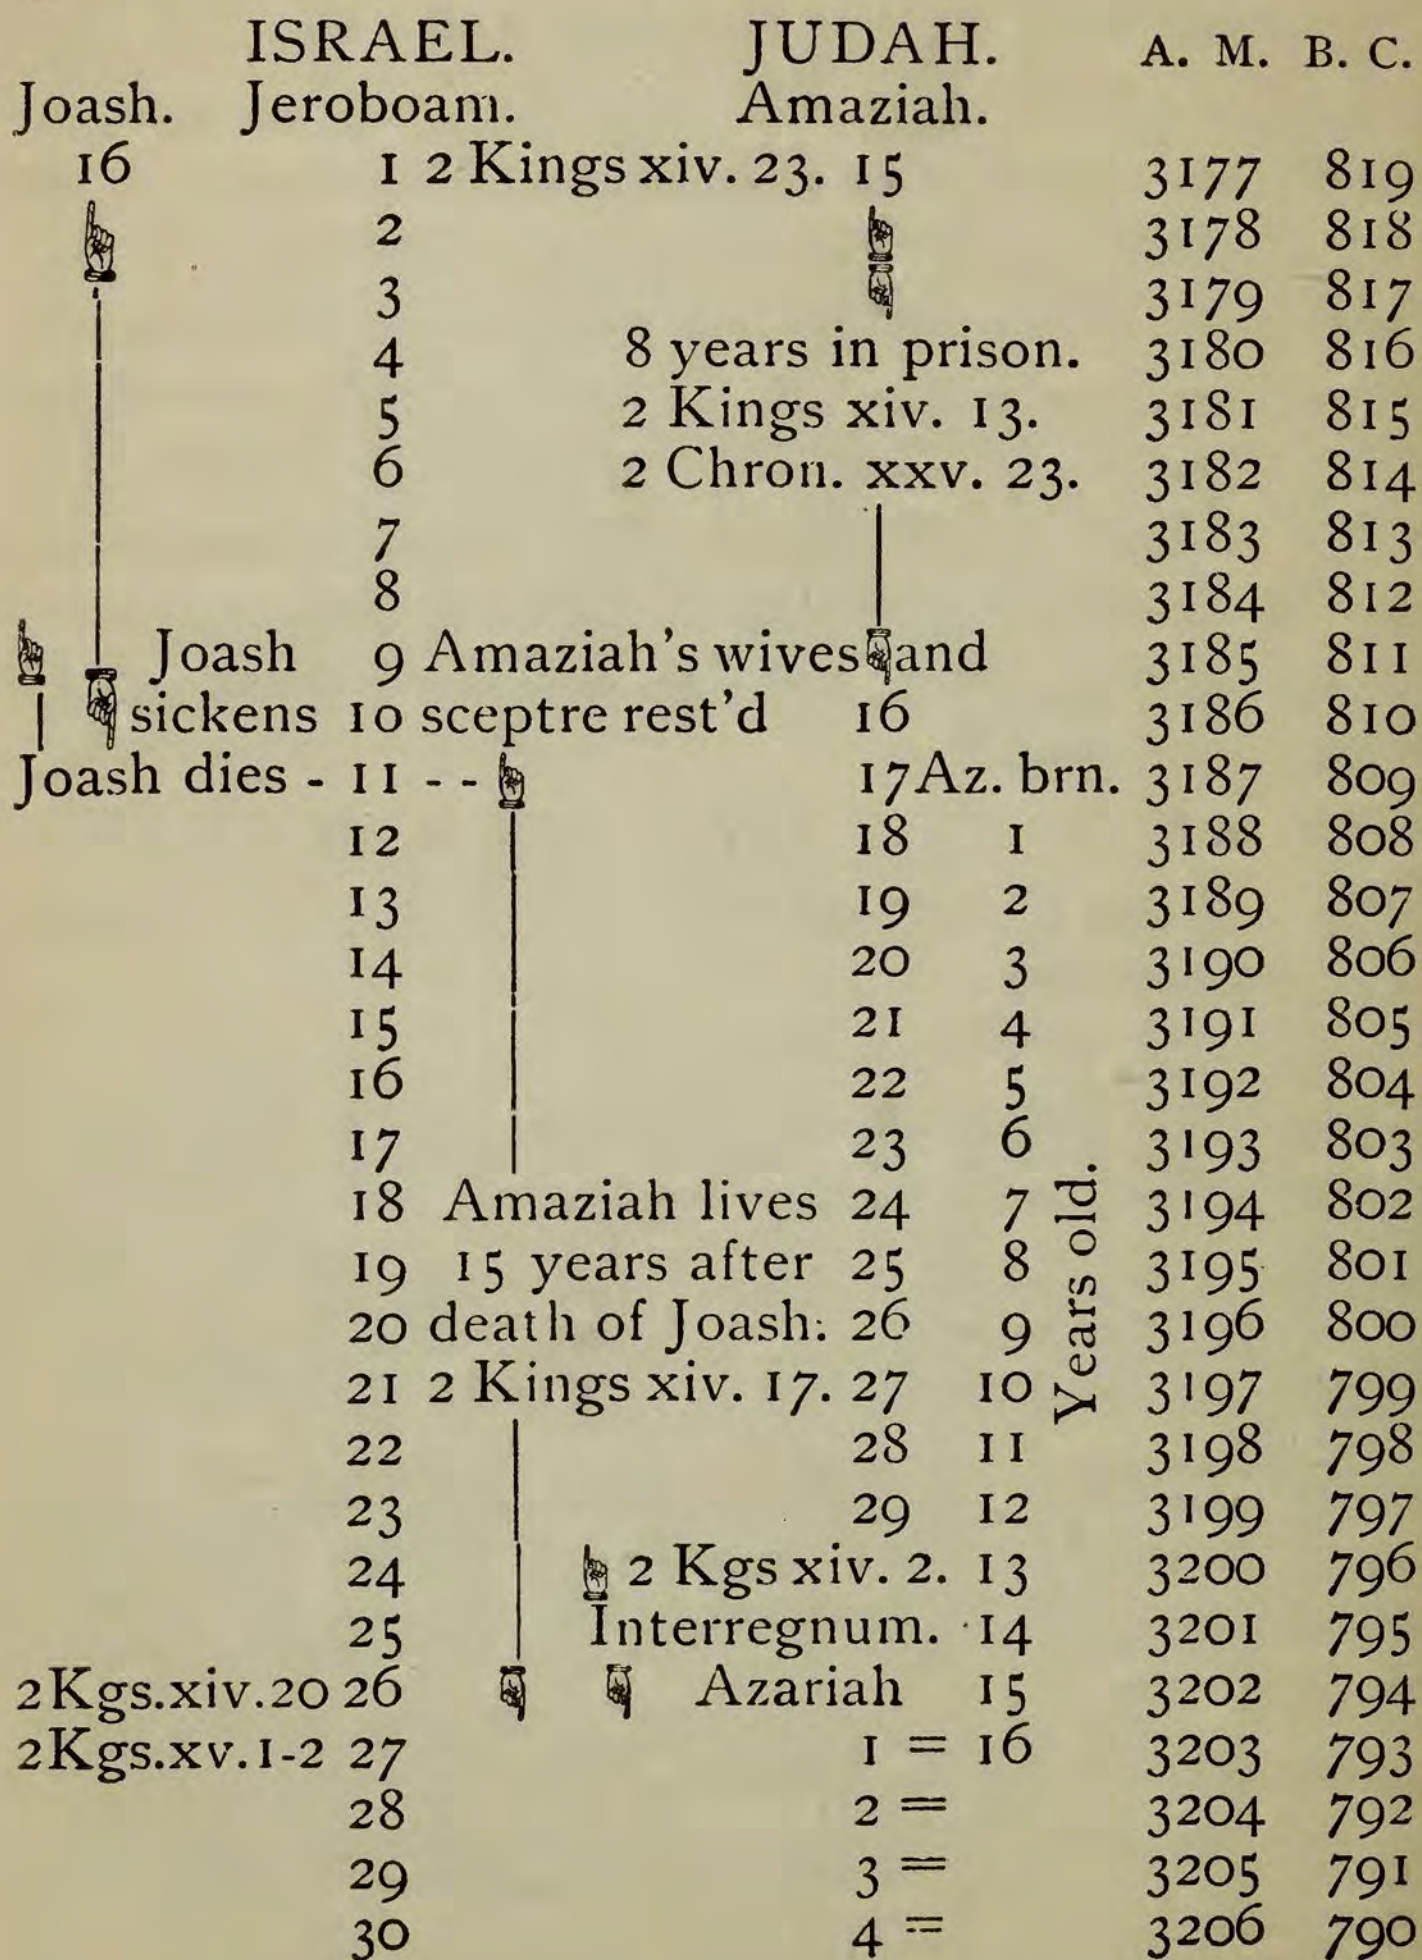 ISRAEL. JUDAH. A. M. B. C.
Joash. Jeroboam. Amaziah.
16 1 2 Kings xiv. 23. 15 3177 819
2 3178 818
3 3179 817
4 8 years in prison. 3180 816
5 2 Kings xiv. 13. 3181 815
6 2 Chron. xxv. 23. 3182 814
7 3183 813
8 3184 812
Joash 9 Amaziah's wives and 3185 811
sickens 10 sceptre rest'd 16 3186 810
Joash dies - 11 - - 17 Az. brn. 3187 809
12 18 1 3188 808
13 19 2 3189 807
14 20 3 3190 806
15 21 4 3191 805
16 22 5 3192 804
17 23 6 3193 803
18 Amaziah lives 24 7 3194 802
19 15 years after 25 8 3195 801
20 death of Joash. 26 9 3196 800
21 2 Kings xiv. 17. 27 10 3197 799
Years old.
22 28 11 3198 798
23 29 12 3199 797
24 2 Kgs xiv. 2. 13 3200 796
25 Interregnum. 14 3201 795
2Kgs.xiv.20 26 Azariah 15 3202 794
2Kgs.xv.1-2 27 1 = 16 3203 793
28 2 = 3204 792
29 3 = 3205 791
30 4 = 3206 790